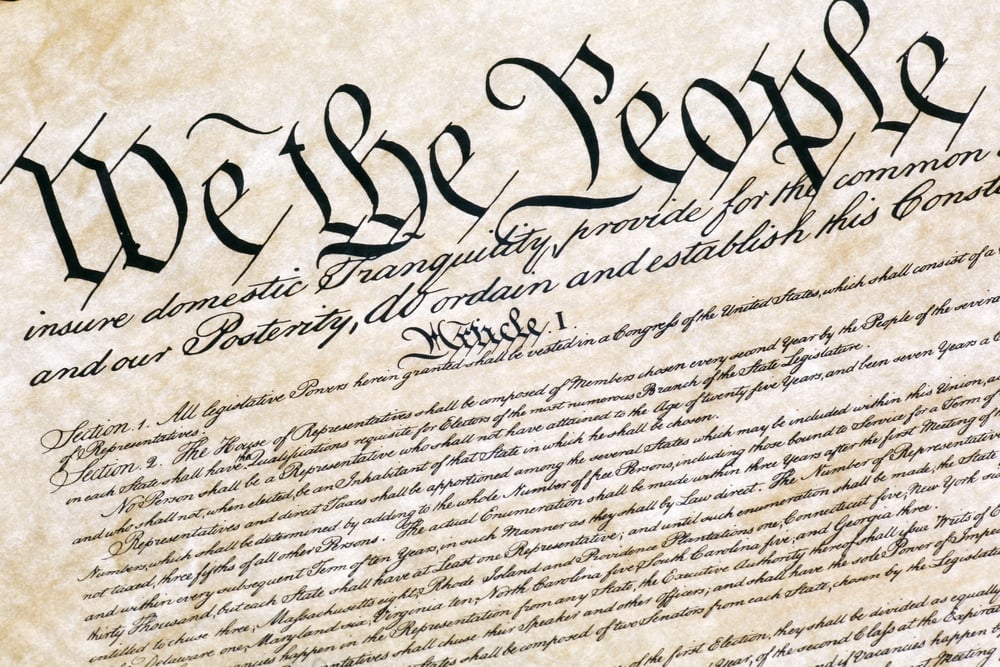 We the People
insure domestic Tranquility, provide for the common
and our Posterity, do ordain and establish this Const
Article I.
Section 1. All legislative Powers herein granted shall be vested in a Congress of the United States, which shall consist of a
of Representatives.
Section 2. The House of Representatives shall be composed of Members chosen every second Year by the People of the several
in each State shall have the Qualifications requisite for Electors of the most numerous Branch of the State Legislature.
No Person shall be a Representative who shall not have attained to the Age of twenty five Years, and been seven Years a
and who shall not, when elected, be an Inhabitant of that State in which he shall be chosen.
Representatives and direct Taxes shall be apportioned among the several States which may be included within this Union, a
Numbers, which shall be determined by adding to the whole Number of free Persons, including those bound to Service for a Term of
not taxed, three fifths of all other Persons. The actual Enumeration shall be made within three Years after the first Meeting of
and within every subsequent Term of ten Years, in such Manner as they shall by Law direct. The Number of Representative
thirty Thousand, but each State shall have at Least one Representative; and until such enumeration shall be made, the State
entitled to chuse three, Massachusetts eight, Rhode Island and Providence Plantations one, Connecticut five, New York six
Delaware one, Maryland six, Virginia ten, North Carolina five, South Carolina five, and Georgia three.
happen in the Representation from any State, the Executive Authority thereof shall issue Writs of
shall chuse their Speaker and other Officers; and shall have the sole Power of Impe
States shall be composed of two Senators from each State, chosen by the Legislat
of the first Election, they shall be divided as equally
Year, of the second Class at the Expirat
if Vacancies happen
Meeting